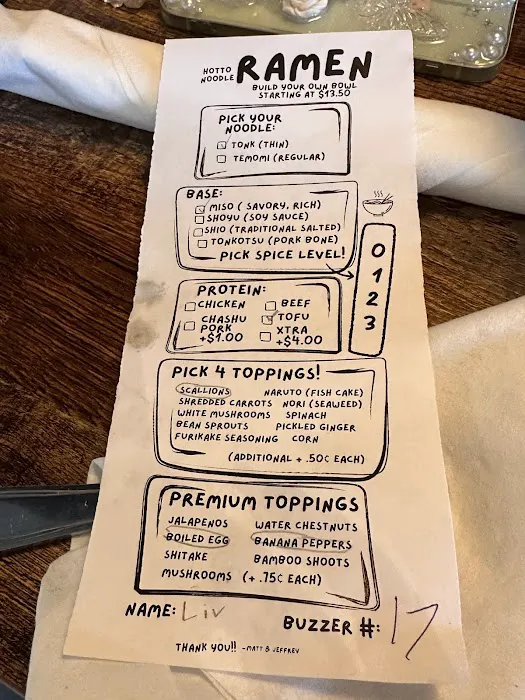 HOTTO NOODLE RAMEN
BUILD YOUR OWN BOWL
STARTING AT $13.50
PICK YOUR
NOODLE:
TONK (THIN)
TEMOMI (REGULAR)
BASE:
MISO ( SAVORY, RICH)
SHOYU (SOY SAUCE)
SHIO (TRADITIONAL SALTED)
TONKOTSU (PORK BONE)
PICK SPICE LEVEL!
0
1
2
3
PROTEIN:
CHICKEN BEEF
CHASHU PORK +$1.00 TOFU
XTRA +$4.00
PICK 4 TOPPINGS!
SCALLIONS NARUTO (FISH CAKE)
SHREDDED CARROTS NORI (SEAWEED)
WHITE MUSHROOMS SPINACH
BEAN SPROUTS PICKLED GINGER
FURIKAKE SEASONING CORN
(ADDITIONAL + .50¢ EACH)
PREMIUM TOPPINGS
JALAPENOS WATER CHESTNUTS
BOILED EGG BANANA PEPPERS
SHITAKE BAMBOO SHOOTS
MUSHROOMS (+ .75¢ EACH)
NAME: Liv
BUZZER #: 17
THANK YOU!! -MATT & JEFFREY